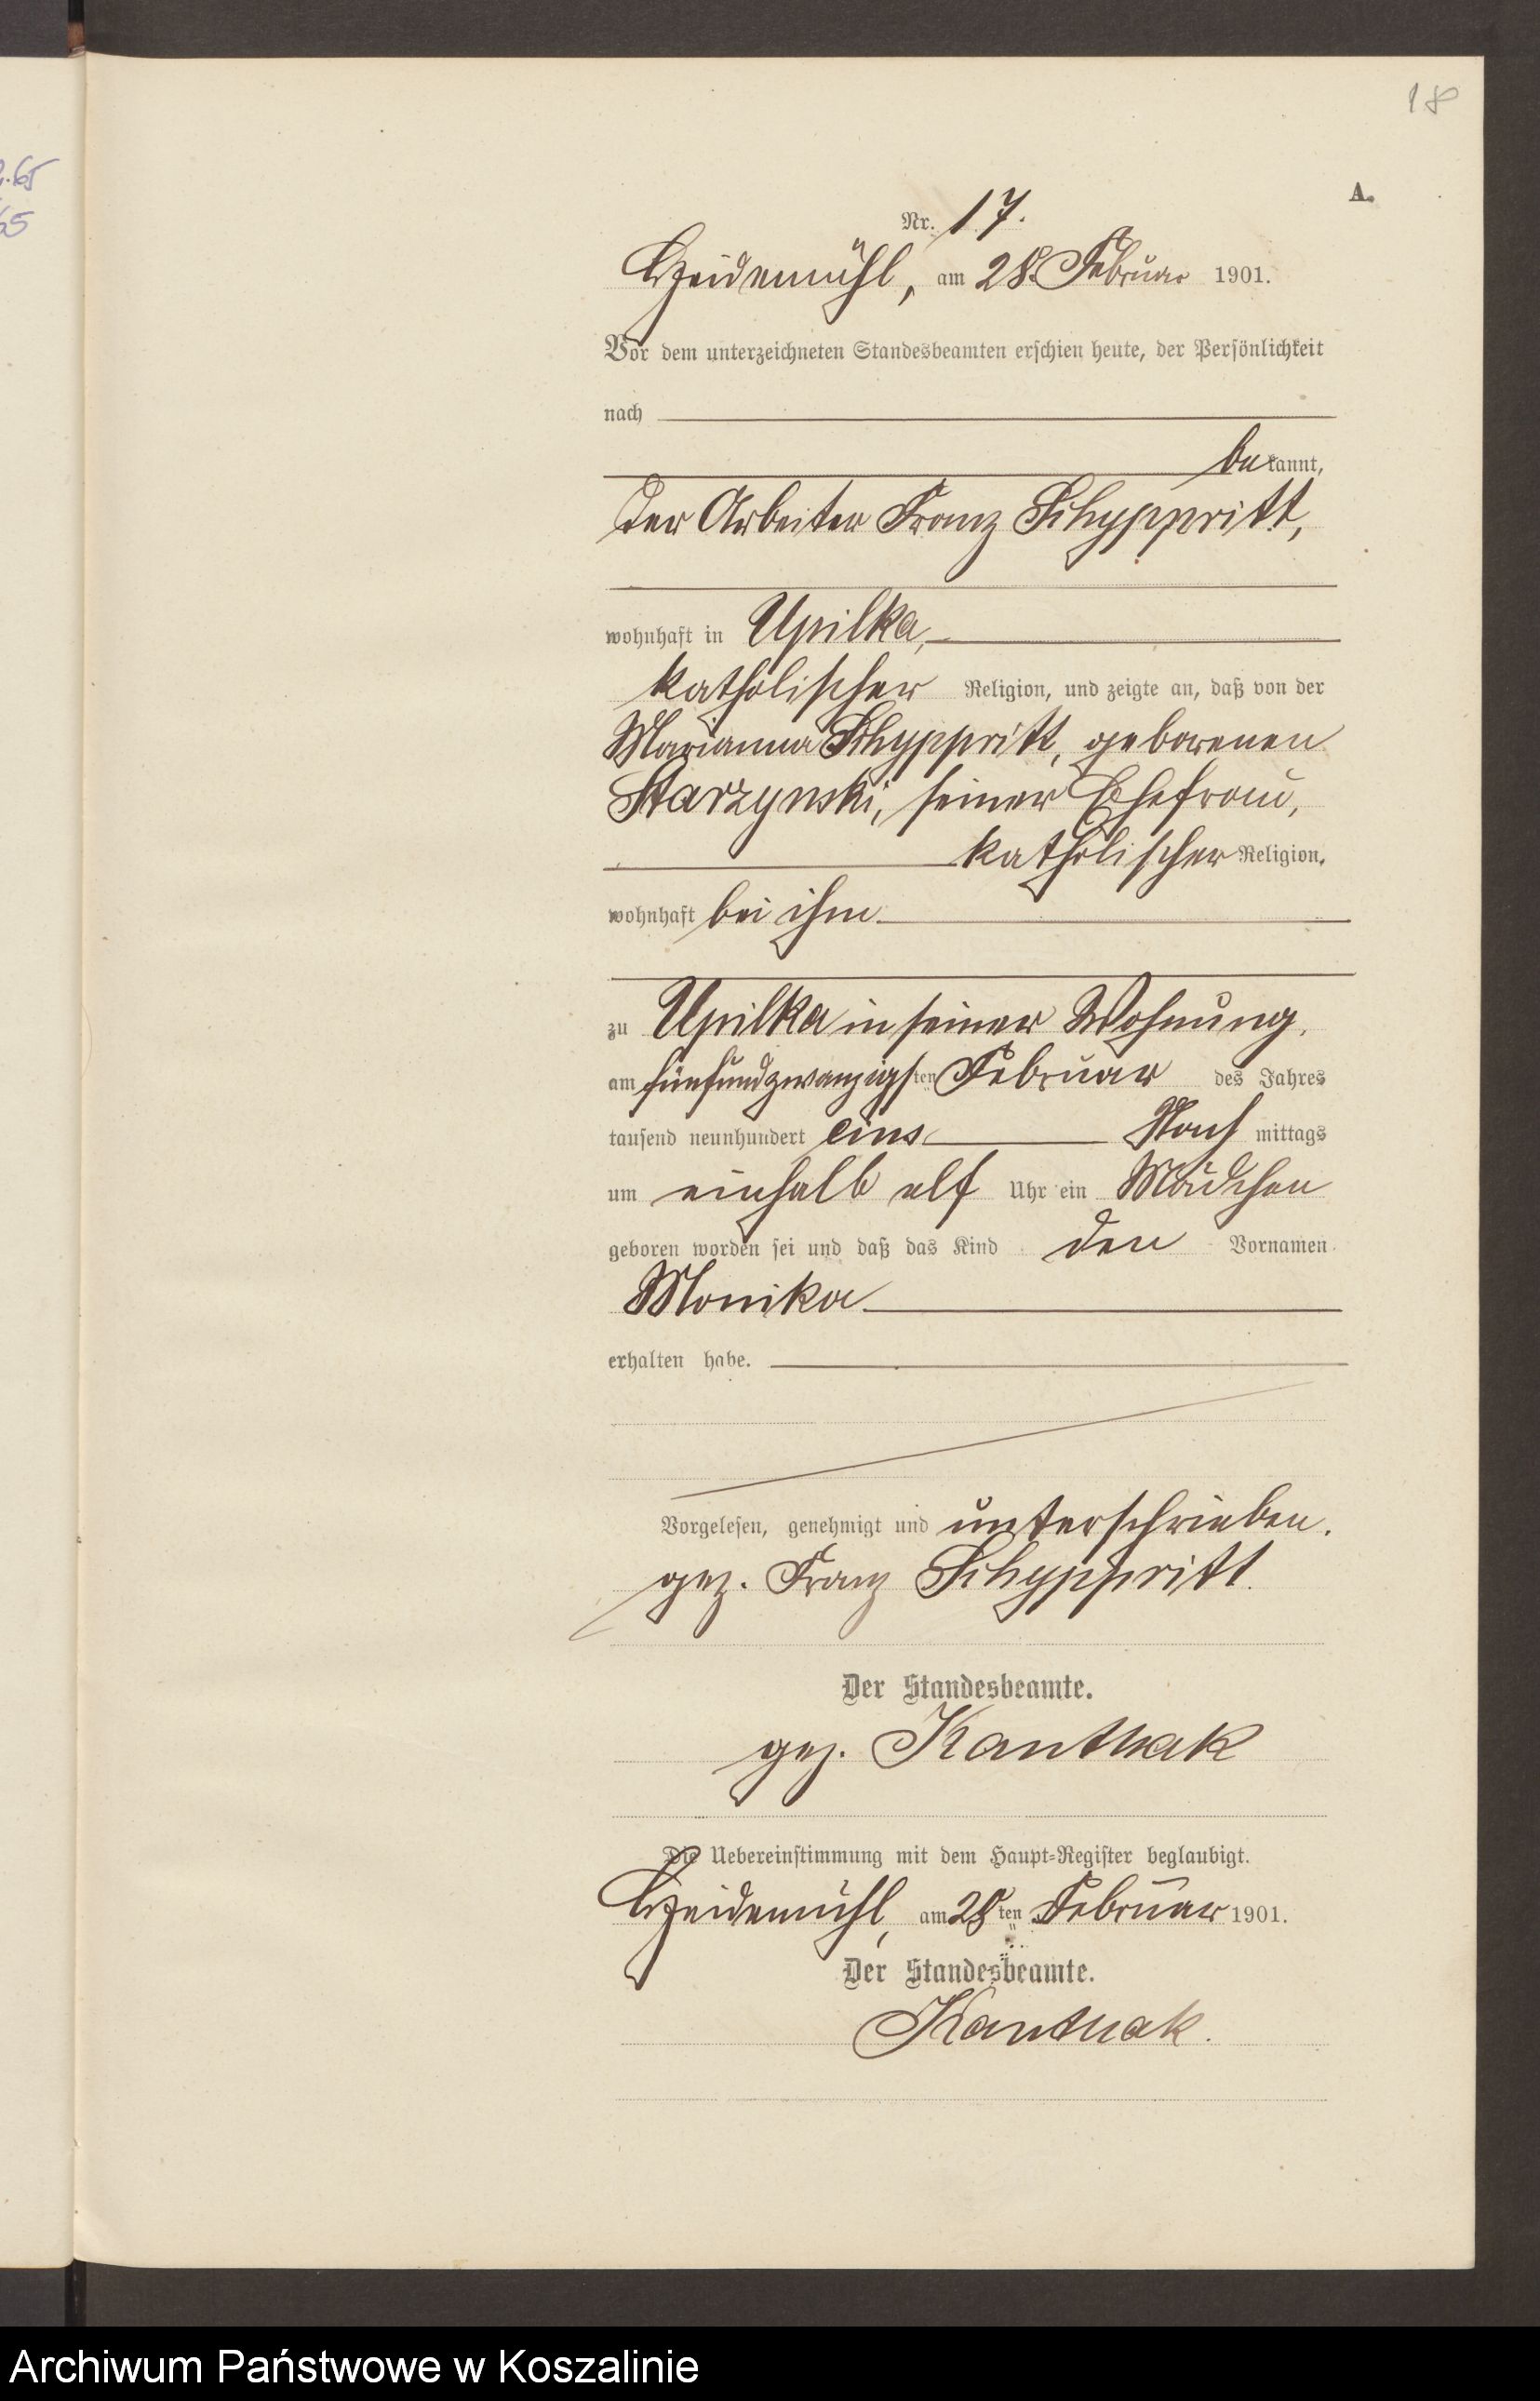 18
2.65
65
A.
Nr. 17.
Heidemühl, am 28. Februar 1901.
Vor dem unterzeichneten Standesbeamten erschien heute, der Persönlichkeit
nach
bekannt,
der Arbeiter Franz Schyppritt,
wohnhaft in Upilka,
katholischer Religion, und zeigte an, daß von der
Marianna Schyppritt, geborenen
Starzynski, seiner Ehefrau,
katholischer Religion,
wohnhaft bei ihm
zu Upilka in seiner Wohnung,
am fünfundzwanzigsten Februar des Jahres
tausend neunhundert eins Nachmittags
um einhalb elf Uhr ein Mädchen
geboren worden sei und daß das Kind den Vornamen
Monika
erhalten habe.
Vorgelesen, genehmigt und unterschrieben.
gez. Franz Schyppritt.
Der Standesbeamte.
gez. Kanthak
Die Uebereinstimmung mit dem Haupt-Register beglaubigt.
Heidemühl, am 28ten Februar 1901.
Der Standesbeamte.
Kanthak.
Archiwum Państwowe w Koszalinie